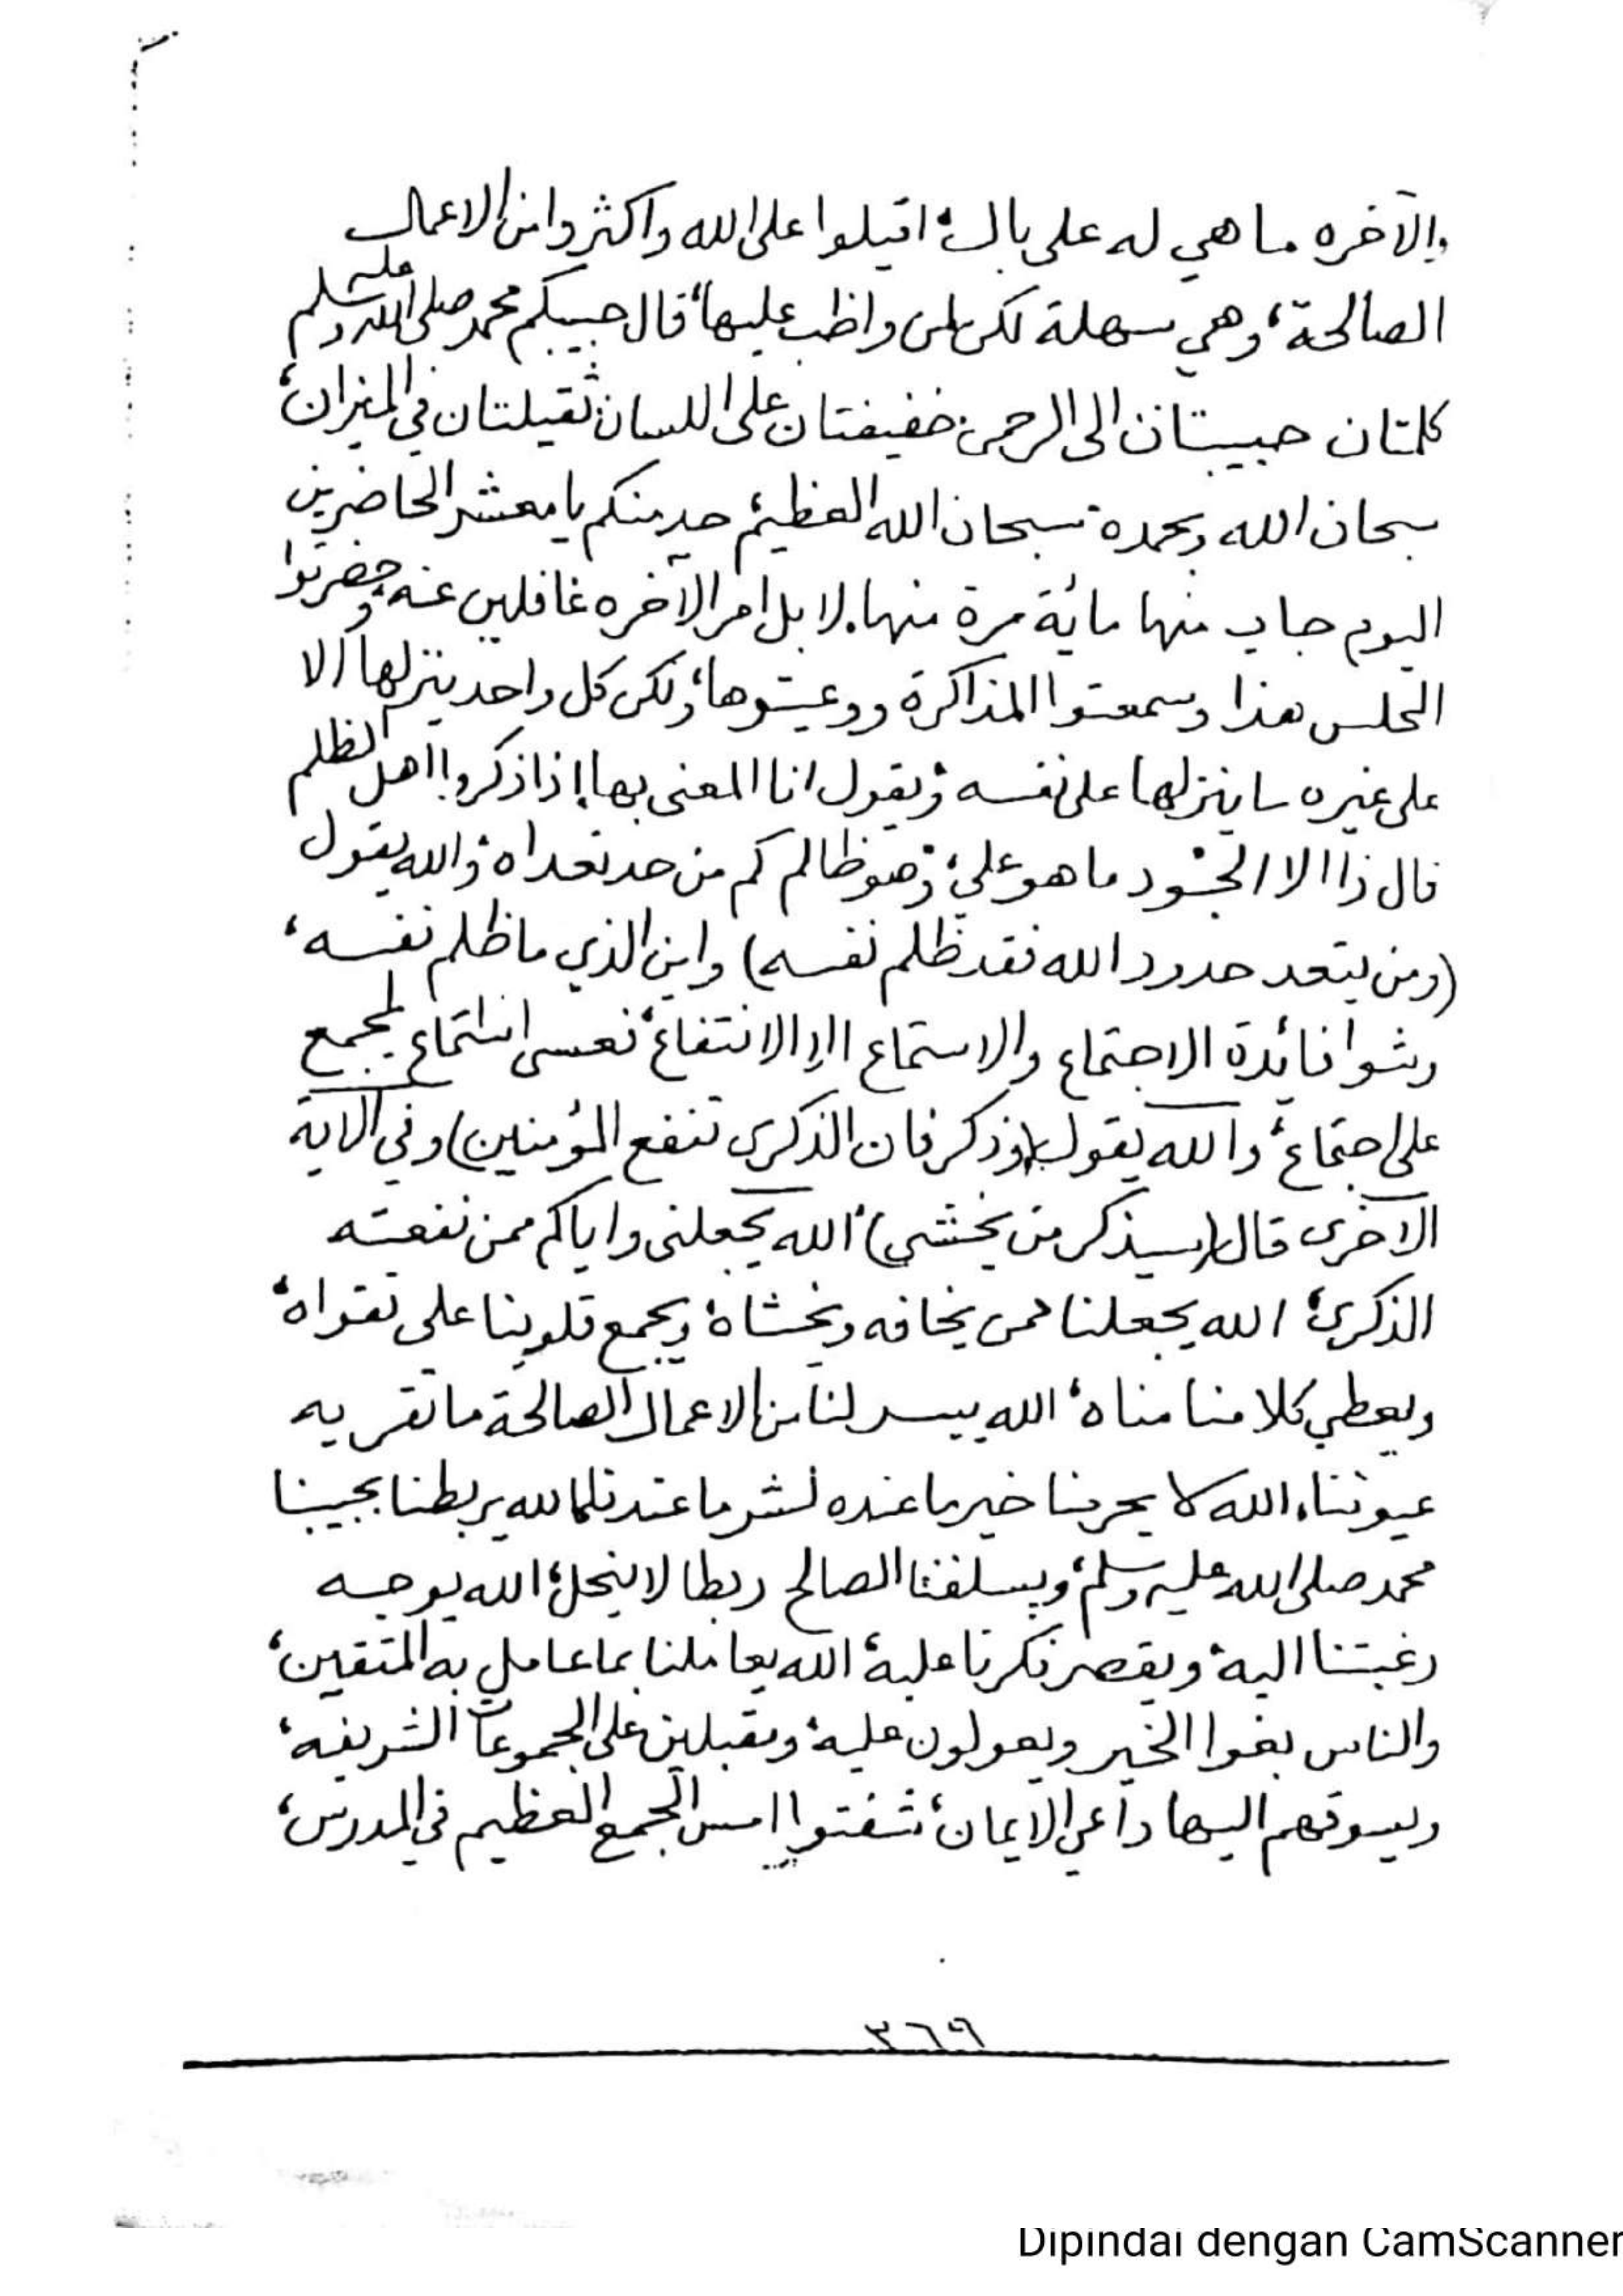 والآخره ما هي له على بال، اقبلوا على الله واكثروا من الاعمال
الصالحة، وهي سهلة لكن لمن واظب عليها، قال حبيبكم محمد صلى الله عليه وسلم
كلمتان حبيبتان الى الرحمن خفيفتان على اللسان ثقيلتان في الميزان،
سبحان الله وبحمده سبحان الله العظيم، حد منكم يا معشر الحاضرين
اليوم جاب منها مائة مرة منها. لا بل امر الآخره غافلين عنه، وحضرتوا
المجلس هذا وسمعتوا المذاكرة ووعيتوها، ولكن كل واحد ينزلها الا
على غيره ما ينزلها على نفسه ويقول انا المعني بها، إذا ذكروا اهل الظلم
قال ذا الا ما هو علي، وهو ظالم كم من حد تعداه، والله يقول
(ومن يتعد حدود الله فقد ظلم نفسه) واين الذي ما ظلم نفسه،
وشوا فائدة الاجتماع والاستماع الا الانتفاع، فعسى استماع يجمع
على اجتماع، والله يقول (وذكر فان الذكرى تنفع المؤمنين) وفي الآية
الاخرى قال (سيذكر من يخشى) الله يجعلني واياكم ممن نفعته
الذكرى، الله يجعلنا ممن يخافه ويخشاه، ويجمع قلوبنا على تقواه،
ويعطي كلا منا مناه، الله ييسر لنا من الاعمال الصالحة ما تقر به
عيوننا، الله لا يحرمنا خير ما عنده لشر ما عندنا، الله يربطنا بحبيبنا
محمد صلى الله عليه وسلم، وبسلفنا الصالح ربطا لا ينحل، الله يوجه
رغبتنا اليه، ويقصر فكرنا عليه، الله يعاملنا بما عامل به المتقين،
والناس بغوا الخير ويعولون عليه، ومقبلين على الجموعات الشريفه،
ويسوقهم اليها داعي الايمان، شفتوا امس الجمع العظيم في المدرس،
٣٦٩
Dipindai dengan CamScanner